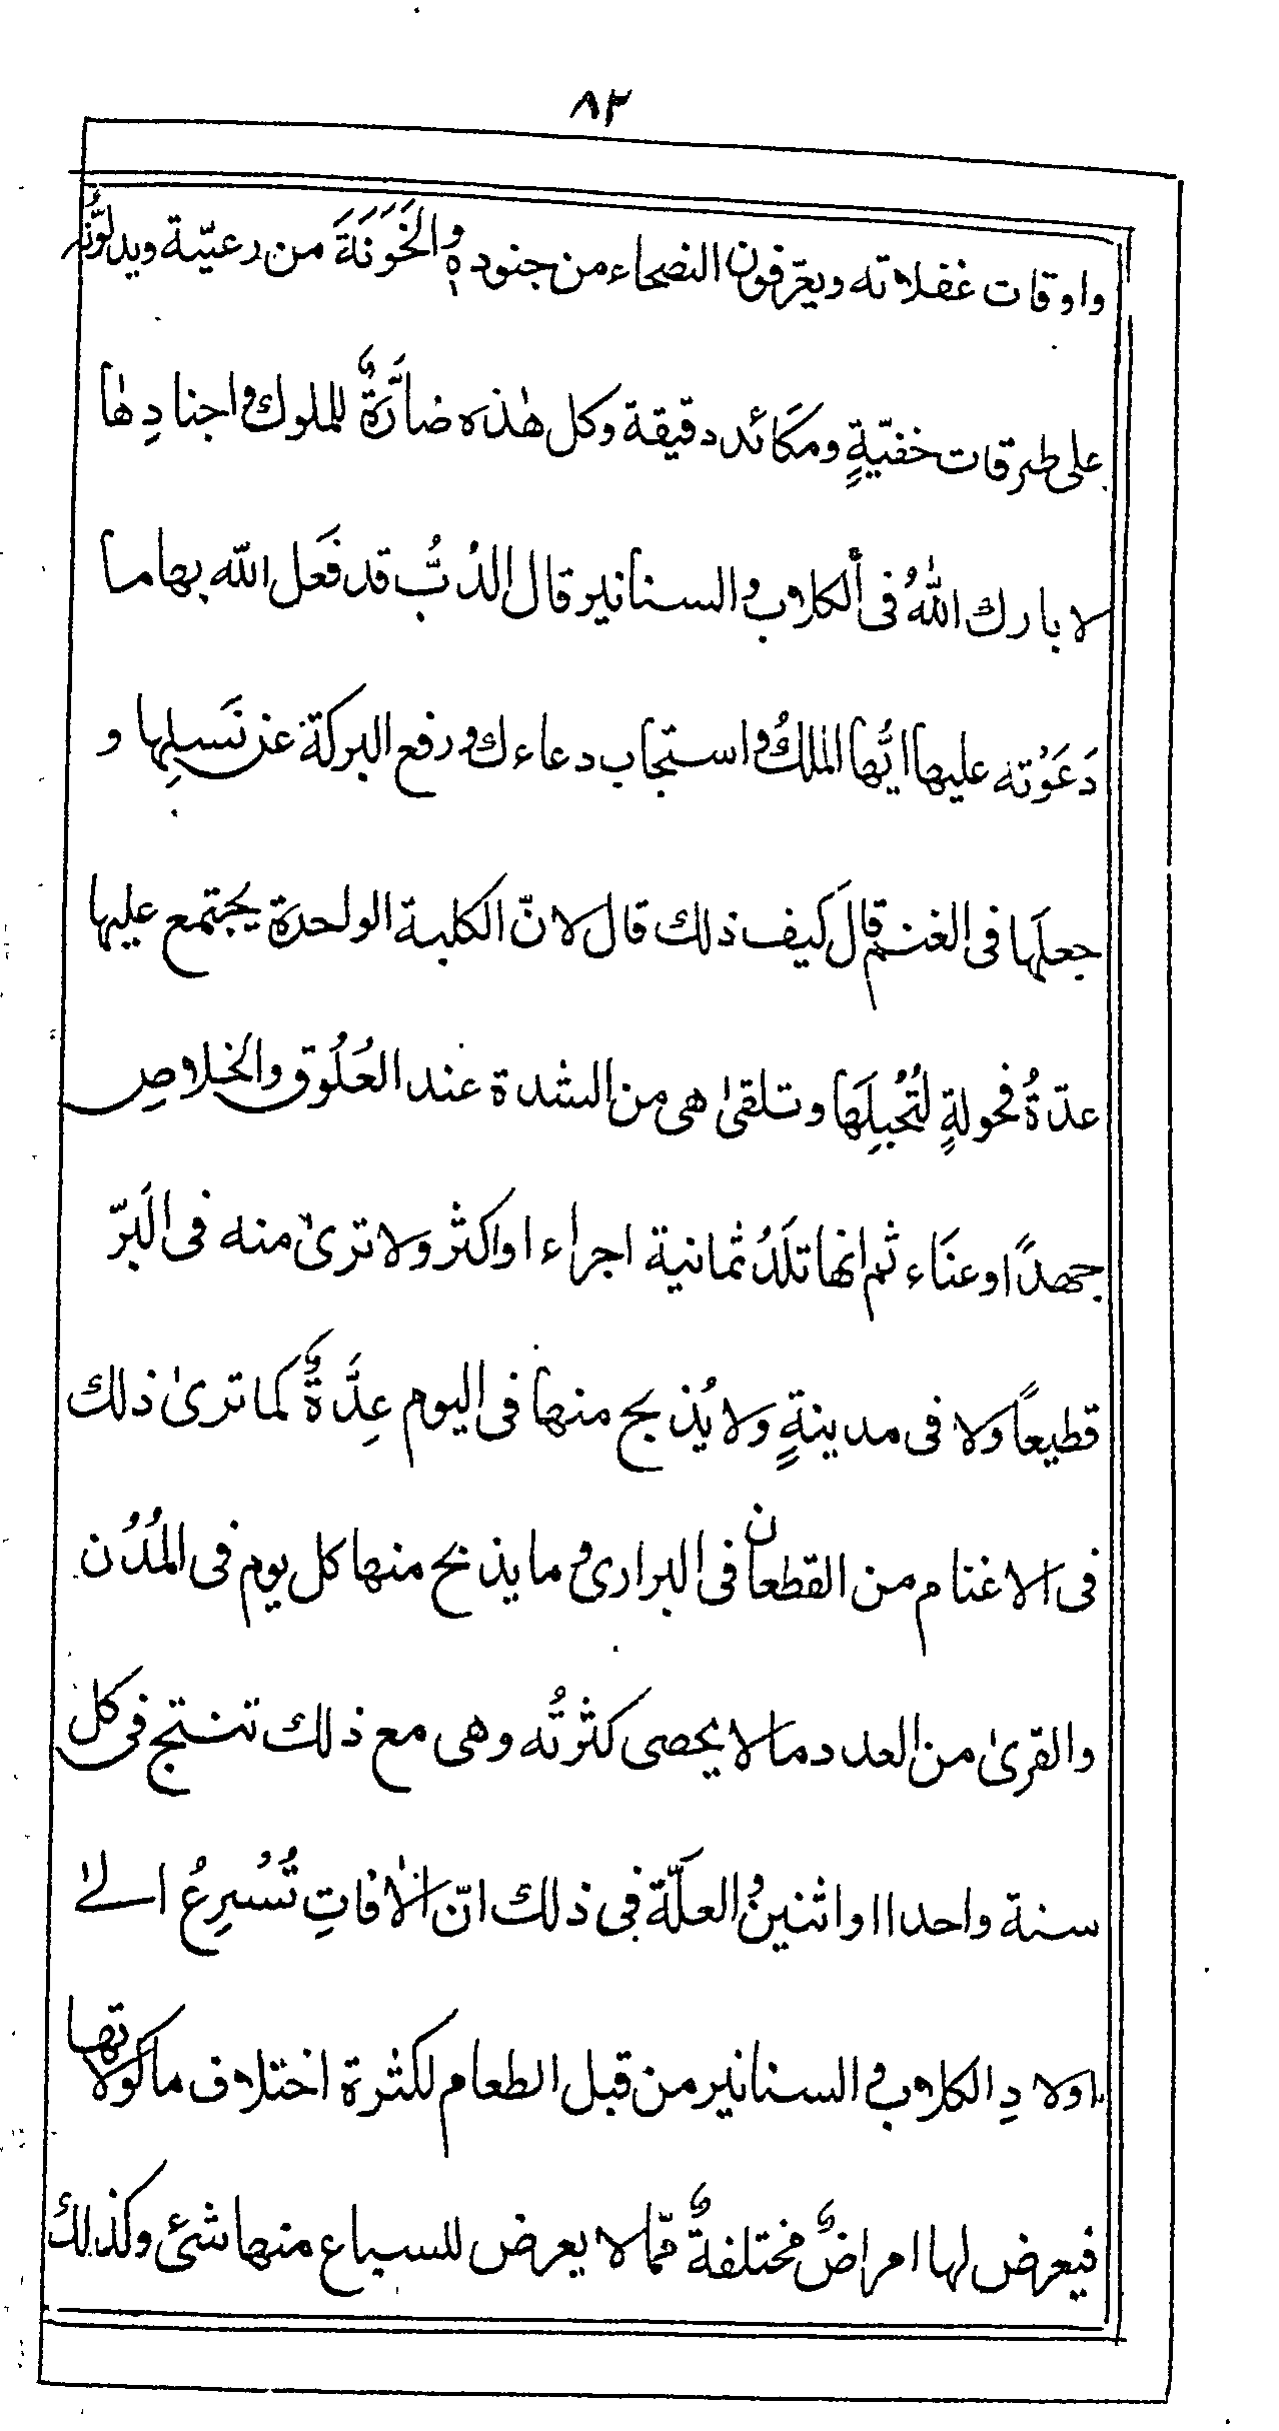 ٨٣
واوقات غفلاته ويعرّفون النصحاء من جنوده والخَوَنَةَ من رعيّة ويدلّونُه
على طرقات خفيّةٍ ومكَائد دقيقة وكل هٰذه ضارَّةٌ للملوك واجنادِها
لا بارك اللهُ فى ألكلاب والسنانير قال الدُبُّ قد فَعَل الله بها ما
دَعَوْته عليها ايُّها الملكُ واستجاب دعاءك ورفع البركة عن نَسلِها و
جعلَها فى الغنم قالَ كيف ذلك قال لانّ الكلبة الواحدة يجتمع عليها
عدّةُ فحولةٍ لتُحبِلَها وتلقىٰ هى من الشدة عند العُلُوق والخلاصِ
جهدًا وعنَاء ثم انها تلَدُ ثمانية اجراء او اكثر ولا ترىٰ منه فى البَرّ
قطيعاً ولا فى مدينةٍ ولا يُذبح منها فى اليوم عِدَّةٌ كما ترىٰ ذلك
فى الاغنام من القطعان فى البرارى وما يذبح منها كل يوم فى المُدُن
والقرىٰ من العدد ما لا يحصى كثرتُه وهى مع ذلك تنتج فى كل
سنة واحدا او اثنين والعلّة فى ذلك انّ الاٰفاتِ تُسُرِعُ الىٰ
اولادِ الكلاب والسنانير من قبل الطعام لكثرة اختلاف ماكولاتها
فيعرض لها امراضٌ مختلفةٌ ممّا لا يعرض للسباع منها شئ وكذلك